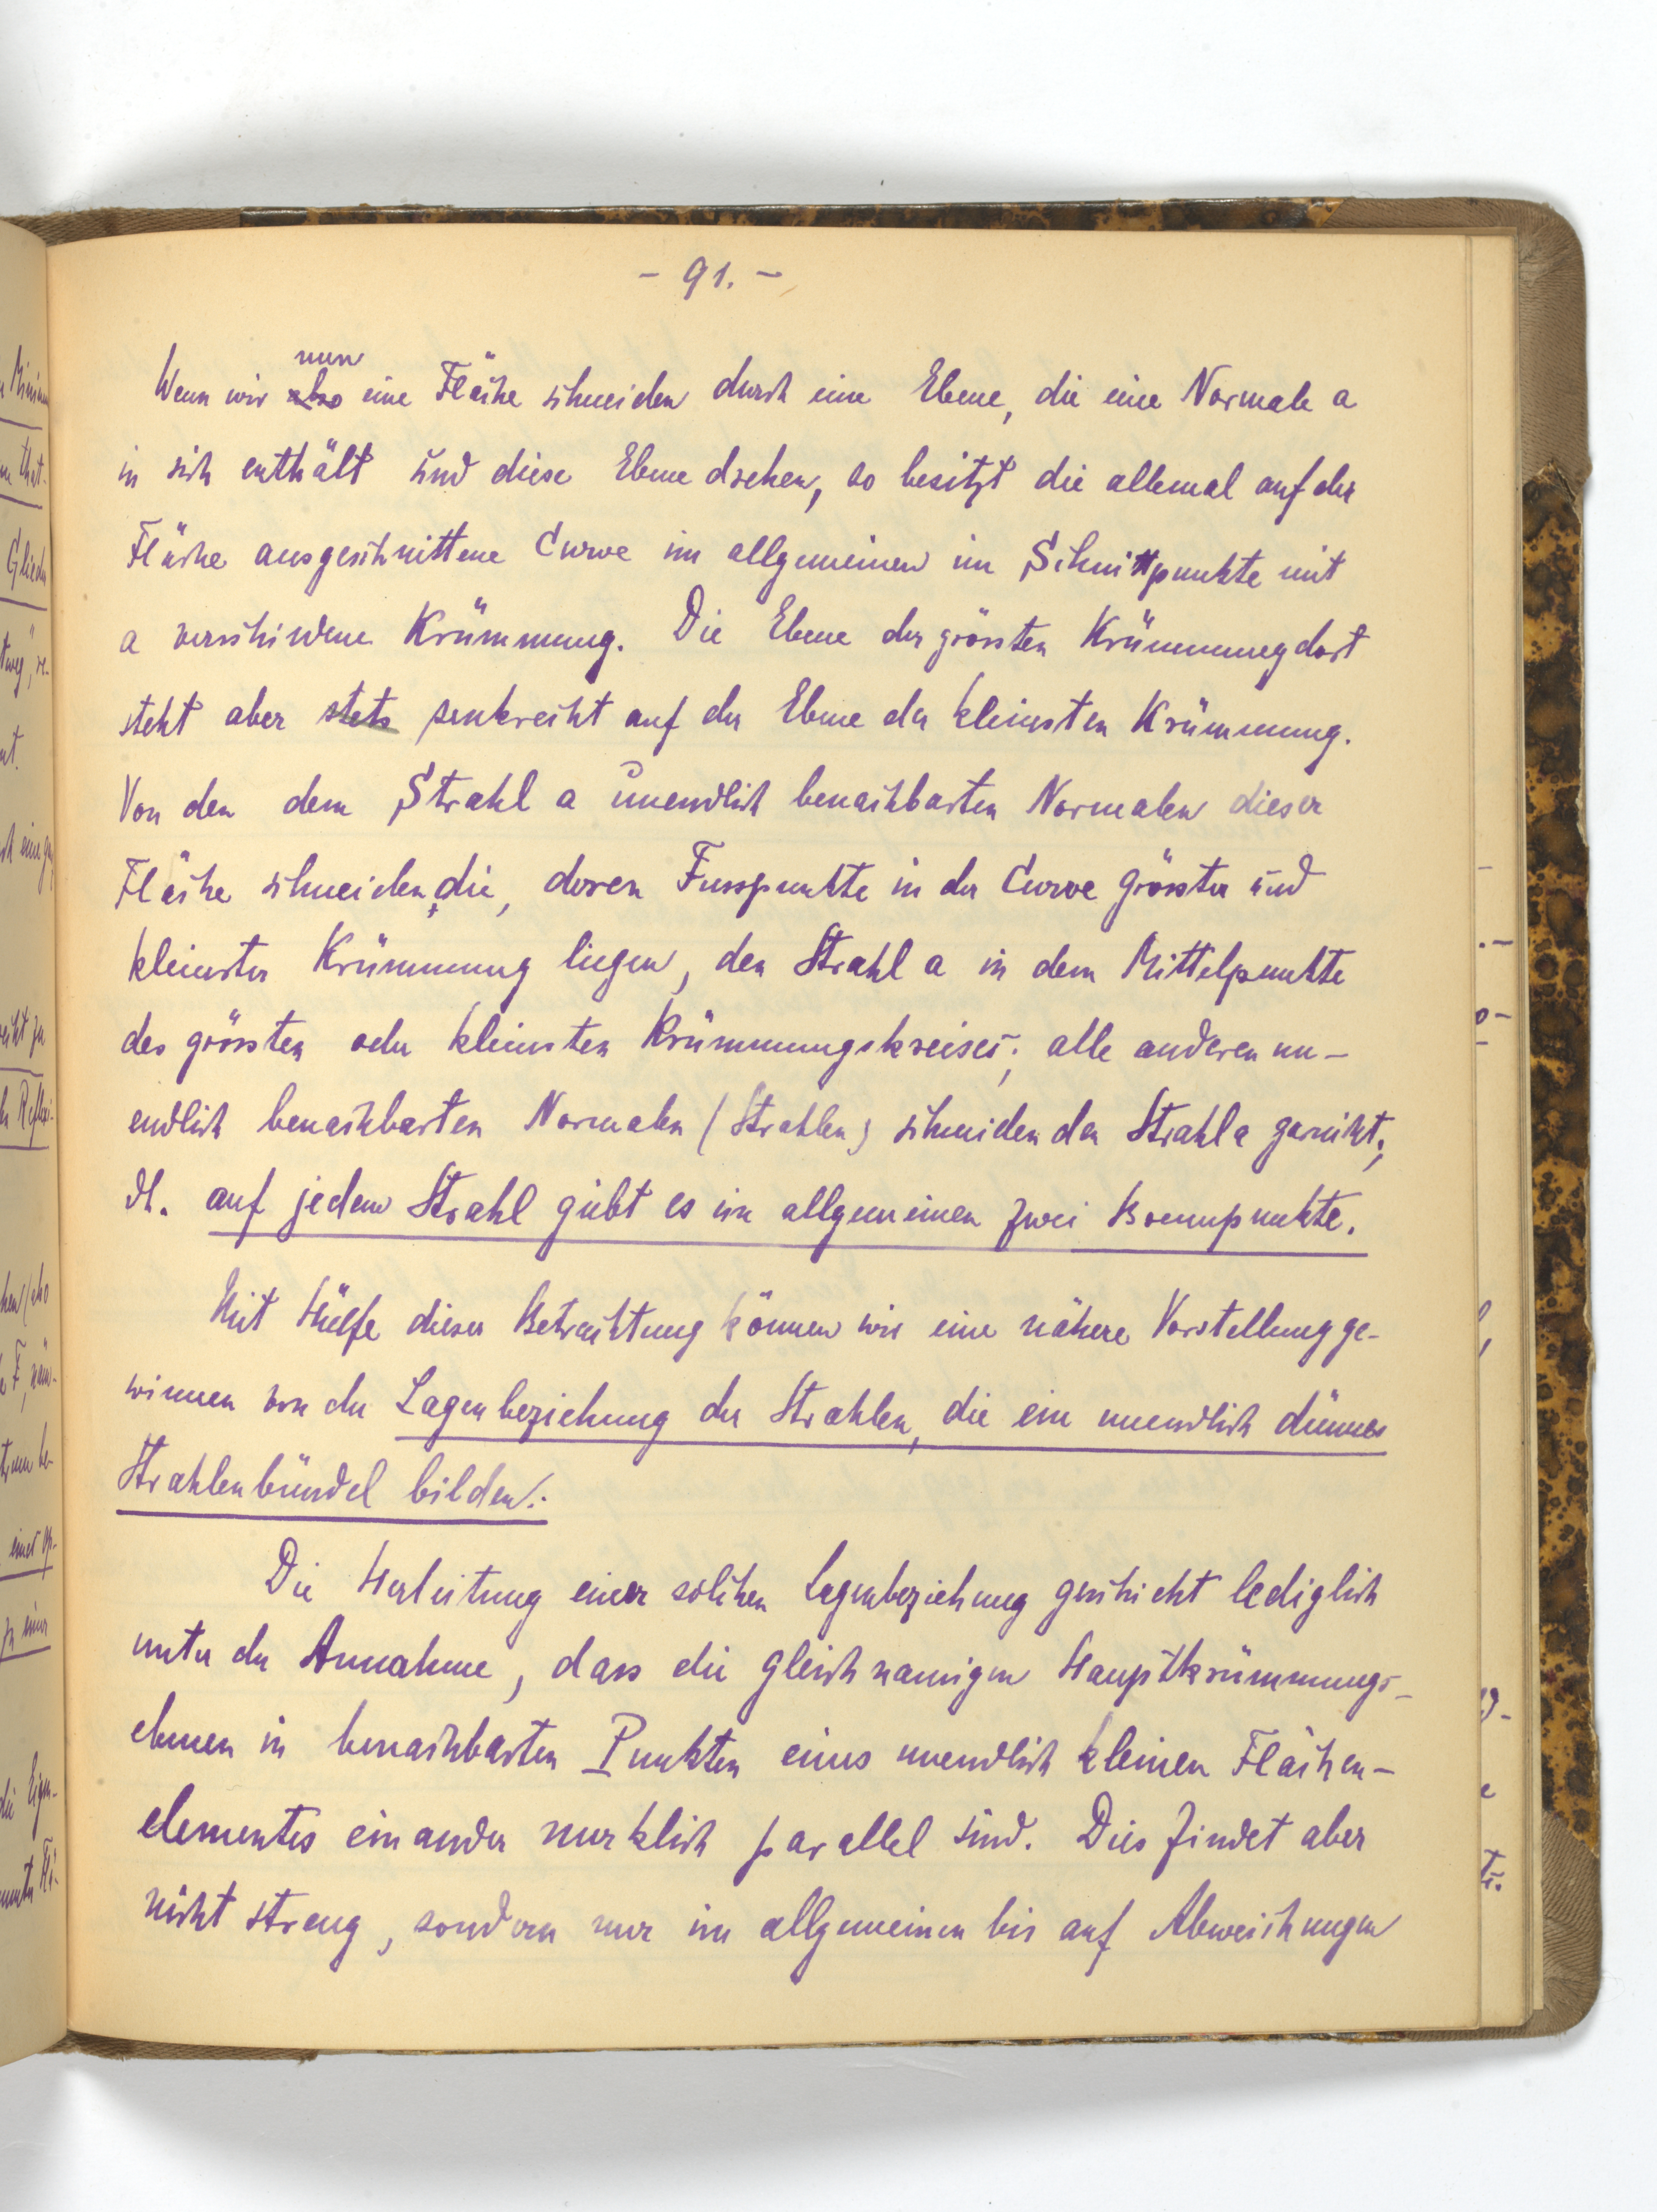 - 91. -
nun
Wenn wir also eine Fläche schneiden durch eine Ebene, die eine Normale a
in sich enthält und diese Ebene drehen, so besitzt die allemal auf der
Fläche ausgeschnittene Curve im allgemeinen im Schnittpunkte mit
a verschiedene Krümmung. Die Ebene der grössten Krümmung dort
steht aber stets senkrecht auf der Ebene der kleinsten Krümmung.
Von den dem Strahl a unendlich benachbarten Normalen dieser
Fläche schneiden die, deren Fusspunkte in der Curve grösster und
kleinster Krümmung liegen, den Strahl a in dem Mittelpunkte
des grössten oder kleinsten Krümmungskreises; alle anderen un-
endlich benachbarten Normalen (Strahlen) schneiden den Strahl a garnicht;
dh. auf jedem Strahl giebt es im allgemeinen zwei Brennpunkte.
Mit Hülfe dieser Betrachtung können wir eine nähere Vorstellung ge-
winnen von der Lagenbeziehung der Strahlen, die ein unendlich dünnes
Strahlenbündel bilden.
Die Herleitung einer solchen Lagenbeziehung geschieht lediglich
unter der Annahme, dass die gleichnamigen Hauptkrümmungs-
ebenen in benachbarten Punkten eines unendlich kleinen Flächen-
elementes einander merklich parallel sind. Dies findet aber
nicht streng, sondern nur im allgemeinen bis auf Abweichungen